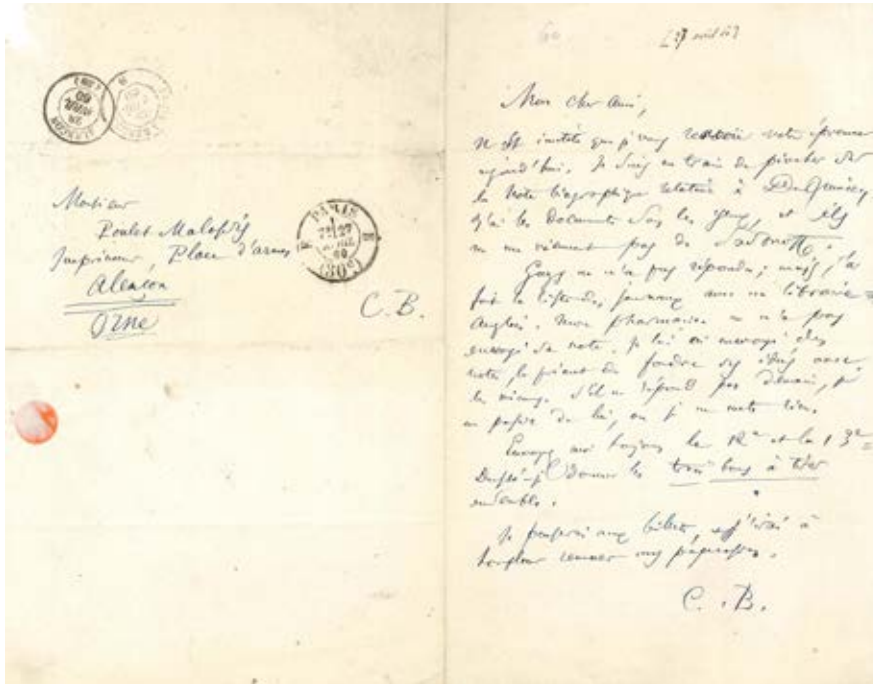 Monsieur
Poulet Malassis
Imprimeur, Place d'armes
Alençon
Orne
C.B.
PARIS
27
60
ALENÇON
28
AVRIL
60
[27 avril 60]
Mon cher ami,
Il est inutile que je vous renvoie votre épreuve
aujourd'hui. Je suis en train de pivoter sur
la note biographique relative à De Quincey.
J'ai les documents sous les yeux, et ils
ne me viennent pas de
ne m'a pas répondu; mais, j'ai
fait la liste des journaux avec un libraire
Anglais. Mon pharmacien n'a pas
envoyé sa note. Je lui ai envoyé des
note, le priant de fondre ses idées avec
les miennes. S'il ne répond pas demain, je
me passe de lui, ou je ne mets rien.
Envoyez moi toujours la 12e et la 13e
Dussé-je donner les trois bons à tirer
ensemble.
Je penserai aux billets, et j'irai à
Honfleur ramener mes paperasses.
C. B.